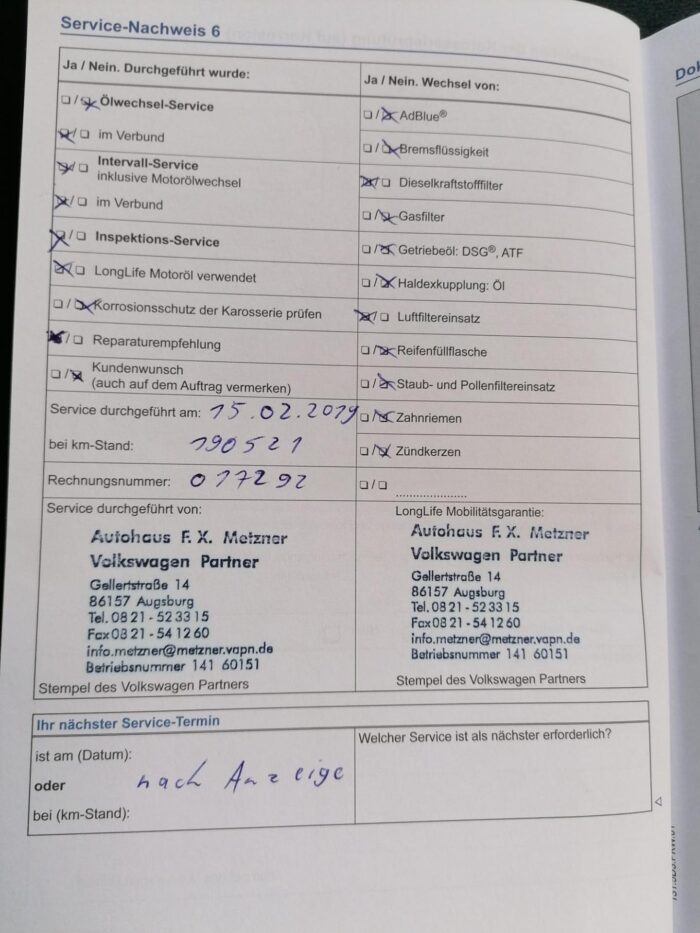 Service-Nachweis 6
Ja / Nein. Durchgeführt wurde:
Ölwechsel-Service
im Verbund
Intervall-Service
inklusive Motorölwechsel
im Verbund
Inspektions-Service
LongLife Motoröl verwendet
Korrosionsschutz der Karosserie prüfen
Reparaturempfehlung
Kundenwunsch
(auch auf dem Auftrag vermerken)
Service durchgeführt am: 15.02.2019
bei km-Stand: 190521
Rechnungsnummer: 017292
Ja / Nein. Wechsel von:
AdBlue®
Bremsflüssigkeit
Dieselkraftstofffilter
Gasfilter
Getriebeöl: DSG®, ATF
Haldexkupplung: Öl
Luftfiltereinsatz
Reifenfüllflasche
Staub- und Pollenfiltereinsatz
Zahnriemen
Zündkerzen
Service durchgeführt von:
Autohaus F. X. Metzner
Volkswagen Partner
Gellertstraße 14
86157 Augsburg
Tel. 08 21 - 52 33 15
Fax 08 21 - 54 12 60
info.metzner@metzner.vapn.de
Betriebsnummer 141 60151
Stempel des Volkswagen Partners
LongLife Mobilitätsgarantie:
Autohaus F. X. Metzner
Volkswagen Partner
Gellertstraße 14
86157 Augsburg
Tel. 08 21 - 52 33 15
Fax 08 21 - 54 12 60
info.metzner@metzner.vapn.de
Betriebsnummer 141 60151
Stempel des Volkswagen Partners
Ihr nächster Service-Termin
ist am (Datum):
oder
nach Anzeige
bei (km-Stand):
Welcher Service ist als nächster erforderlich?